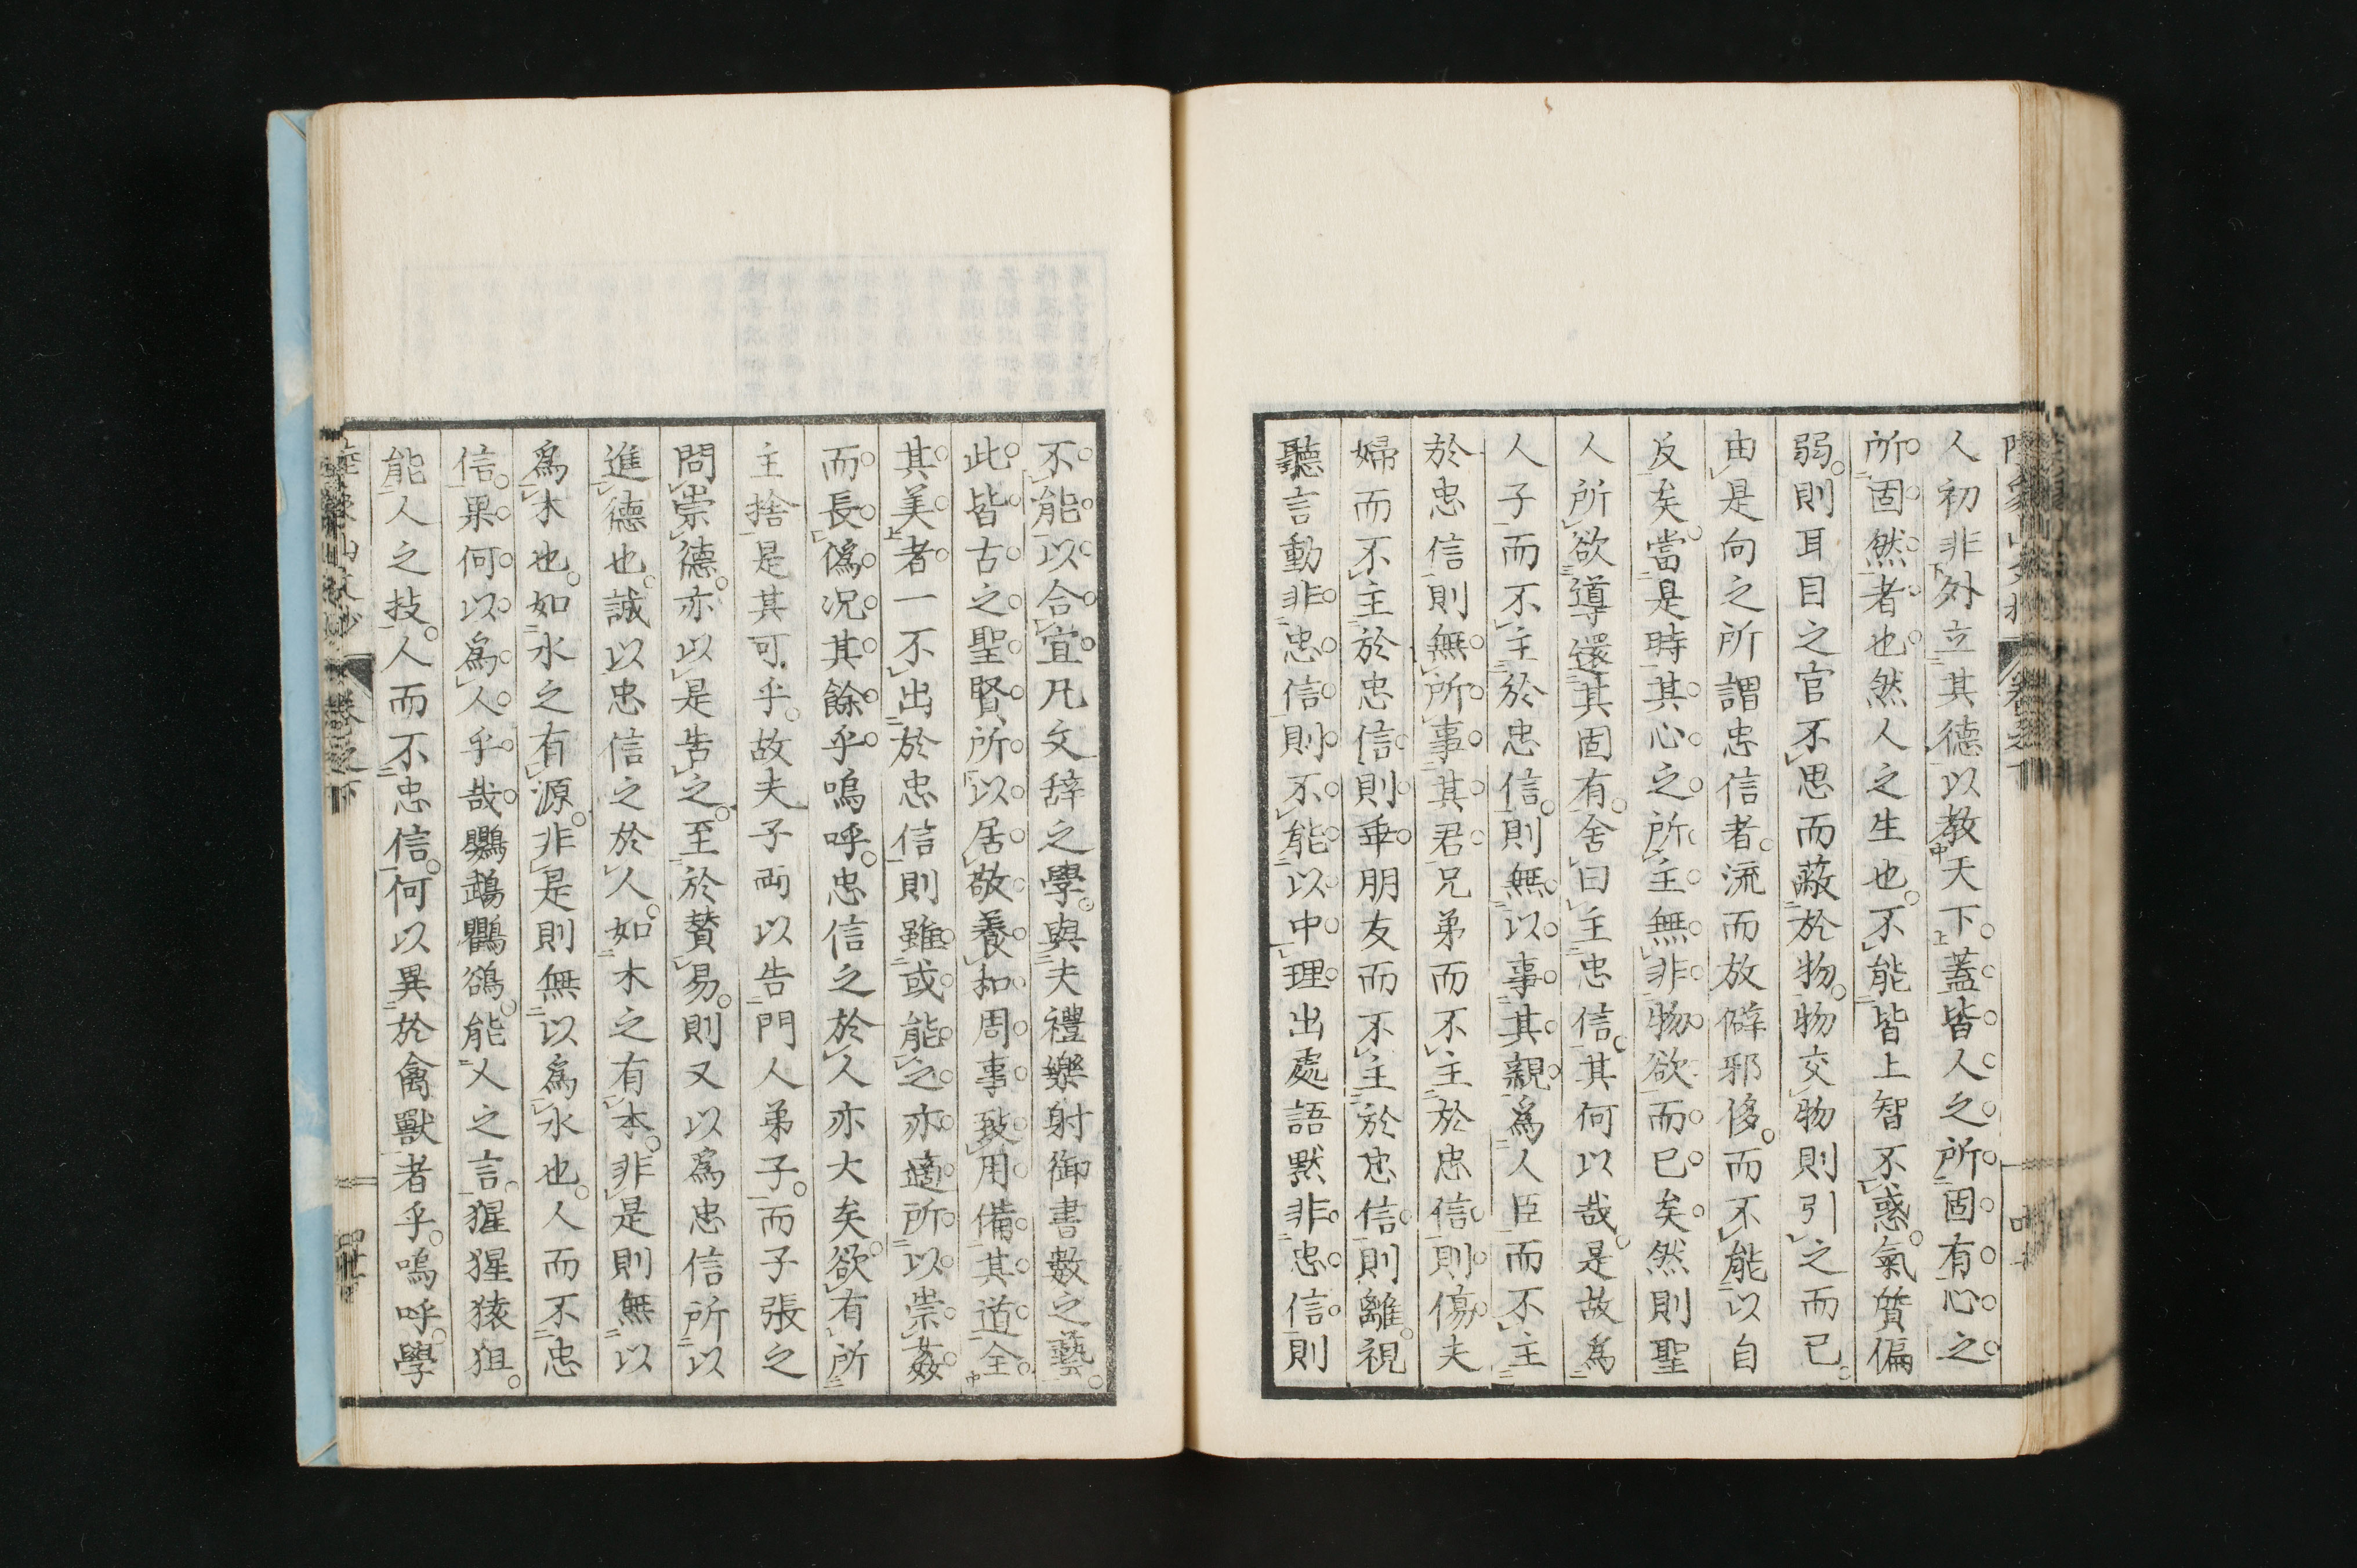 人初非外立其德以教天下蓋皆人之所固有心之
所固然者也然人之生也不能皆上智不惑氣質偏
弱則耳目之官不思而蔽於物物交物則引之而已
由是向之所謂忠信者流而放僻邪侈而不能以自
反矣當是時其心之所主無非物欲而已矣然則聖
人所欲導還其固有舍曰主忠信其何以哉是故爲
人子而不主於忠信則無以事其親爲人臣而不主
於忠信則無所事其君兄弟而不主於忠信則傷夫
婦而不主於忠信則乖朋友而不主於忠信則離視
聽言動非忠信則不能以中理出處語默非忠信則
不能以合宜凡文辞之學與夫禮樂射御書數之藝
此皆古之聖賢所以居敬養和周事致用備其道全
其美者一不出於忠信則雖或能之亦適所以崇姦
而長僞況其餘乎嗚呼忠信之於人亦大矣欲有所
主捨是其可乎故夫子兩以告門人弟子而子張之
問崇德亦以是告之至於贊易則又以爲忠信所以
進德也誠以忠信之於人如木之有本非是則無以
爲木也如水之有源非是則無以爲水也人而不忠
信果何以爲人乎哉鸚鵡鸜鵒能人之言猩猩猿狙
能人之技人而不忠信何以異於禽獸者乎嗚呼學